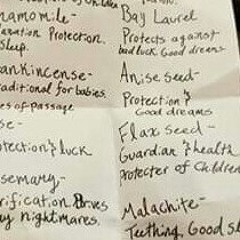 of Children
Chamomile-
Protection.
Sleep.
Frankincense-
Traditional for babies.
Rites of passage
Rose-
Protection & luck
Rosemary-
Purification Drives
away nightmares.
Bay Laurel
Protects against
bad luck. Good dreams
Anise seed-
Protection &
Good dreams
Flax seed-
Guardian & health
Protecter of Children
Malachite-
Teething, Good